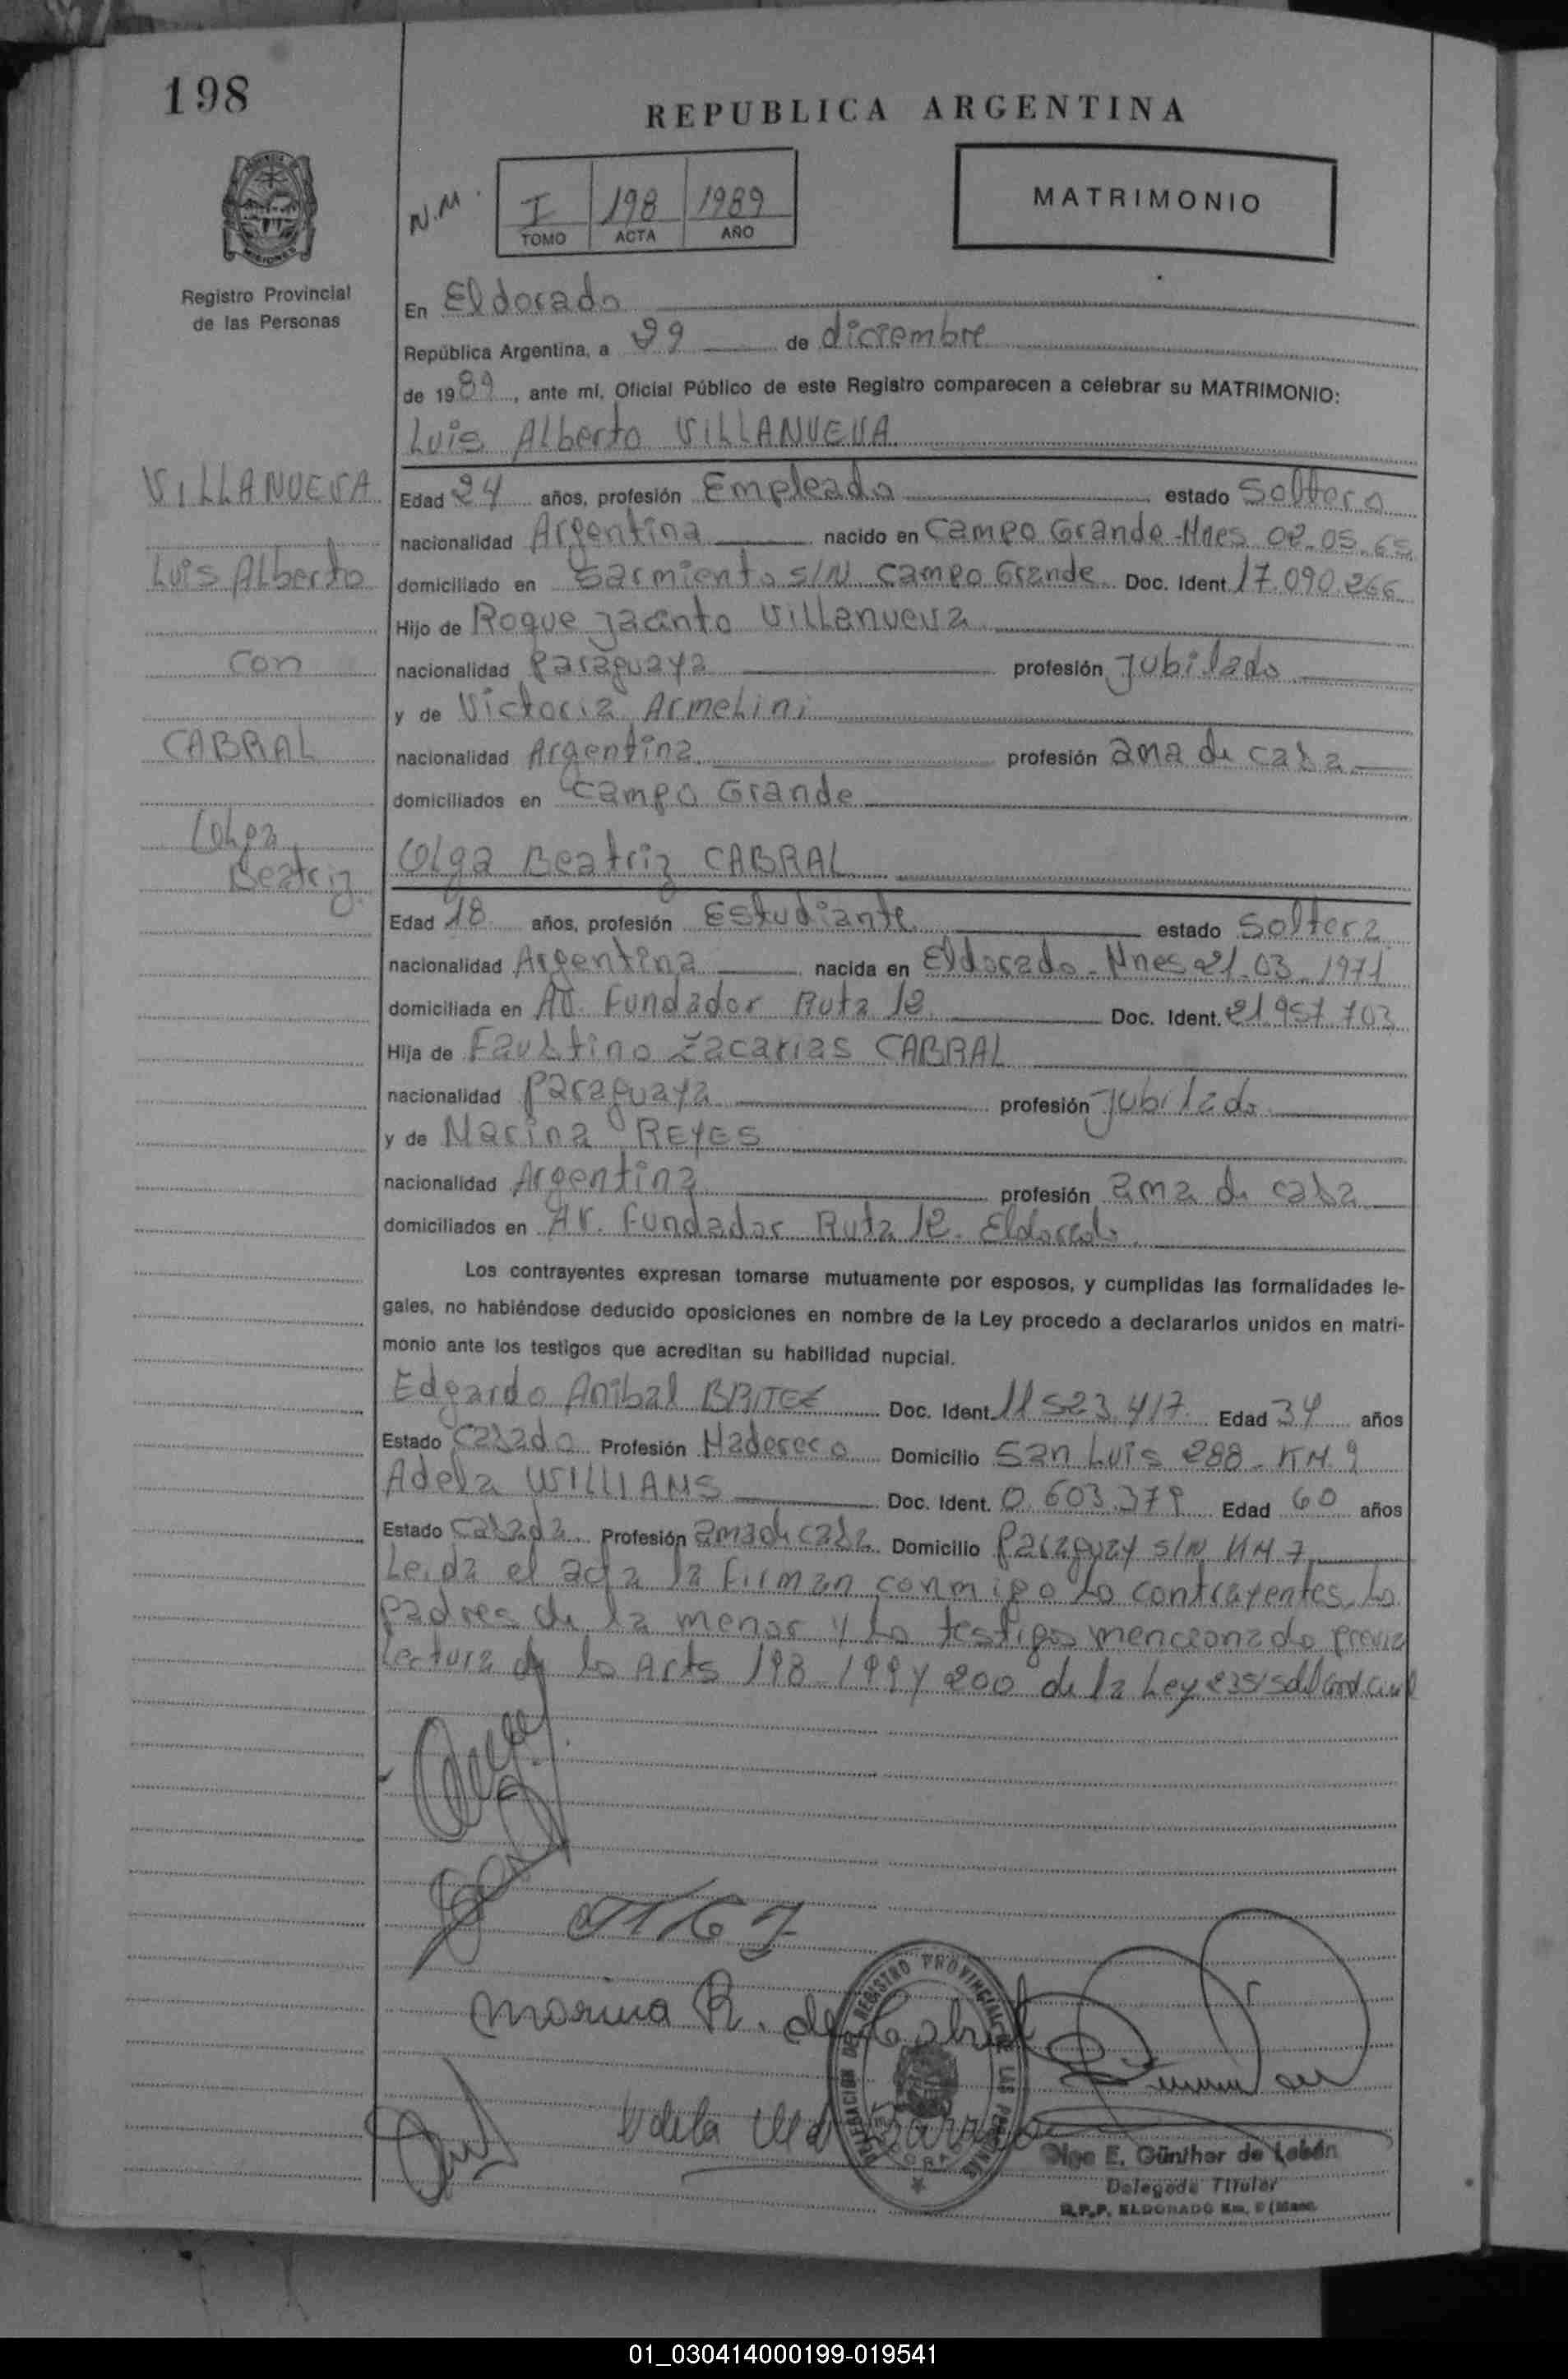 198
REPUBLICA ARGENTINA
N.M.
I 198 1989
TOMO ACTA AÑO
MATRIMONIO
Registro Provincial
de las Personas
En Eldorado
República Argentina, a 29 de diciembre
de 1989, ante mí, Oficial Público de este Registro comparecen a celebrar su MATRIMONIO:
Luis Alberto VILLANUEVA
VILLANUEVA
Luis Alberto
con
CABRAL
Olga
Beatriz
Edad 24 años, profesión Empleado estado Soltero
nacionalidad Argentina nacido en Campo Grande-Mnes 02.05.65
domiciliado en Sarmiento s/N Campo Grande Doc. Ident. 17.090.266
Hijo de Roque Jacinto Villanueva
nacionalidad Paraguaya profesión Jubilado
y de Victoria Armelini
nacionalidad Argentina profesión ama de casa
domiciliados en Campo Grande
Olga Beatriz CABRAL
Edad 18 años, profesión Estudiante estado Soltera
nacionalidad Argentina nacida en Eldorado-Mnes 21.03.1971
domiciliada en Av. Fundador Ruta 12 Doc. Ident. 21.957.703
Hija de Faustino Zacarias CABRAL
nacionalidad Paraguaya profesión Jubilado
y de Marina REYES
nacionalidad Argentina profesión ama de casa
domiciliados en Av. Fundador Ruta 12. Eldorado.
Los contrayentes expresan tomarse mutuamente por esposos, y cumplidas las formalidades le-
gales, no habiéndose deducido oposiciones en nombre de la Ley procedo a declararlos unidos en matri-
monio ante los testigos que acreditan su habilidad nupcial.
Edgardo Anibal BRITEZ Doc. Ident. 11.523.417 Edad 34 años
Estado casado Profesión Maderero Domicilio San Luis 288-KM.9
Adela WILLIAMS Doc. Ident. 0.603.379 Edad 60 años
Estado casada Profesión ama de casa Domicilio Paraguay s/N KM 7
Leida el acta la firman conmigo los contrayentes, los
padres de la menor y los testigos mencionado previa
lectura de los Arts 198-199 y 200 de la Ley 23515 del Cod Civil
Marina R. de Cabral
Adela
REGISTRO PROVINCIAL DE LAS PERSONAS
Olga E. Günther de Lobán
Delegada Titular
R.P.P. ELDORADO Km. 9 (Mnes.
01_030414000199-019541